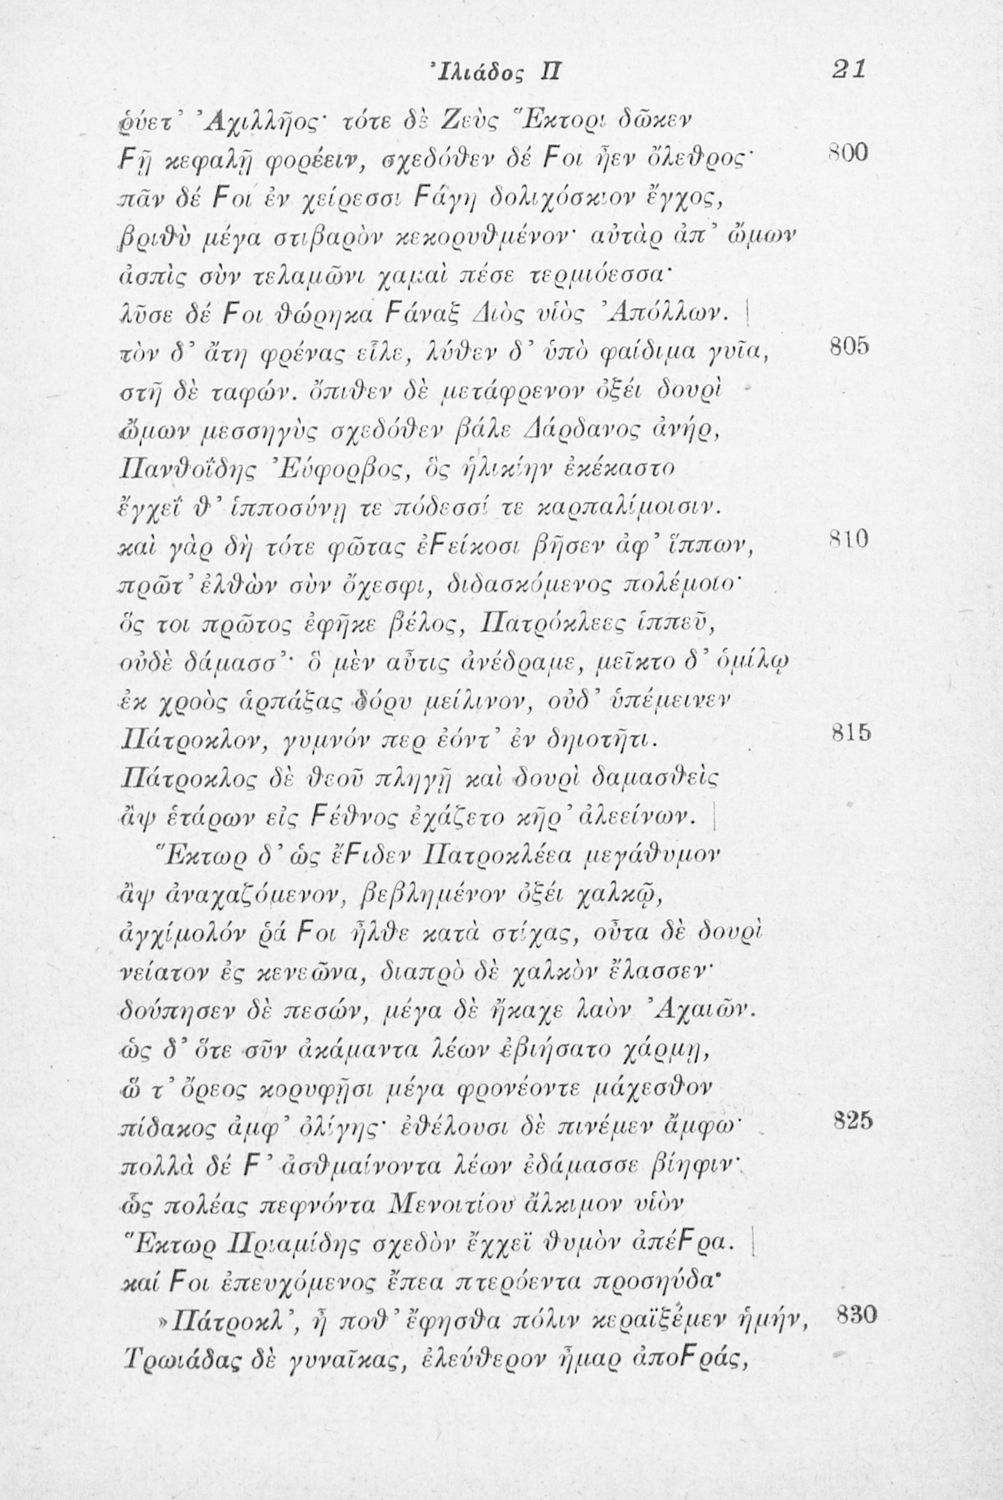 Ἰλιάδος Π 21
ῥύετ’ Ἀχιλλῆος· τότε δὲ Ζεὺς Ἕκτορι δῶκεν
Ϝῇ κεφαλῇ φορέειν, σχεδόθεν δέ Ϝοι ἦεν ὄλεθρος· 800
πᾶν δέ Ϝοι ἐν χείρεσσι Ϝάγη δολιχόσκιον ἔγχος,
βριθὺ μέγα στιβαρὸν κεκορυθμένον· αὐτὰρ ἀπ’ ὤμων
ἀσπὶς σὺν τελαμῶνι χαμαὶ πέσε τερμιόεσσα·
λῦσε δέ Ϝοι θώρηκα Ϝάναξ Διὸς υἱὸς Ἀπόλλων. |
τὸν δ’ ἄτη φρένας εἷλε, λύθεν δ’ ὑπὸ φαίδιμα γυῖα, 805
στῆ δὲ ταφών. ὄπιθεν δὲ μετάφρενον ὀξέι δουρὶ
ὤμων μεσσηγὺς σχεδόθεν βάλε Δάρδανος ἀνήρ,
Πανθοΐδης Ἐύφορβος, ὃς ἡλικίην ἐκέκαστο
ἔγχεΐ θ’ ἱπποσύνῃ τε πόδεσσί τε καρπαλίμοισιν.
καὶ γὰρ δὴ τότε φῶτας ἐϜείκοσι βῆσεν ἀφ’ ἵππων, 810
πρῶτ’ ἐλθὼν σὺν ὄχεσφι, διδασκόμενος πολέμοιο·
ὅς τοι πρῶτος ἐφῆκε βέλος, Πατρόκλεες ἱππεῦ,
οὐδὲ δάμασσ’· ὃ μὲν αὖτις ἀνέδραμε, μεῖκτο δ’ ὁμίλῳ
ἐκ χροὸς ἁρπάξας δόρυ μείλινον, οὐδ’ ὑπέμεινεν
Πάτροκλον, γυμνόν περ ἐόντ’ ἐν δηιοτῆτι. 815
Πάτροκλος δὲ θεοῦ πληγῇ καὶ δουρὶ δαμασθεὶς
ἂψ ἑτάρων εἰς Ϝέθνος ἐχάζετο κῆρ’ ἀλεείνων. |
Ἕκτωρ δ’ ὡς ἔϜιδεν Πατροκλέεα μεγάθυμον
ἂψ ἀναχαζόμενον, βεβλημένον ὀξέι χαλκῷ,
ἀγχίμολόν ῥά Ϝοι ἦλθε κατὰ στίχας, οὖτα δὲ δουρὶ
νείατον ἐς κενεῶνα, διαπρὸ δὲ χαλκὸν ἔλασσεν·
δούπησεν δὲ πεσών, μέγα δὲ ἤκαχε λαὸν Ἀχαιῶν.
ὡς δ’ ὅτε σῦν ἀκάμαντα λέων ἐβιήσατο χάρμῃ,
ὥ τ’ ὄρεος κορυφῇσι μέγα φρονέοντε μάχεσθον
πίδακος ἀμφ’ ὀλίγης· ἐθέλουσι δὲ πινέμεν ἄμφω· 825
πολλὰ δέ Ϝ’ ἀσθμαίνοντα λέων ἐδάμασσε βίηφιν·
ὣς πολέας πεφνόντα Μενοιτίου ἄλκιμον υἱὸν
Ἕκτωρ Πριαμίδης σχεδὸν ἔγχεϊ θυμὸν ἀπέϜρα. |
καί Ϝοι ἐπευχόμενος ἔπεα πτερόεντα προσηύδα·
»Πάτροκλ’, ἦ ποθ’ ἔφησθα πόλιν κεραϊξέμεν ἡμήν, 830
Τρωιάδας δὲ γυναῖκας, ἐλεύθερον ἦμαρ ἀποϜράς,